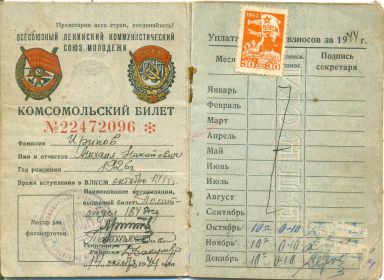 Пролетарии всех стран, соединяйтесь!
ВСЕСОЮЗНЫЙ ЛЕНИНСКИЙ КОММУНИСТИЧЕСКИЙ
СОЮЗ МОЛОДЕЖИ
КОМСОМОЛЬСКИЙ БИЛЕТ
№22472096 *
Фамилия
Имя и отчество Михаил Никитович
Год рождения 1926
Время вступления в ВЛКСМ октябрь 1944
Наименование организации,
выдавшей билет Полит-
отдел
Место для
фотокарточки
октября
Уплата взносов за 1944 г.
Месяц
Подпись
секретаря
30 30
Январь
Февраль
Март
Апрель
Май
Июнь
Июль
Август
Сентябрь
Октябрь 10= 0-10
Ноябрь 10= 0-10
Декабрь 10= 0-10